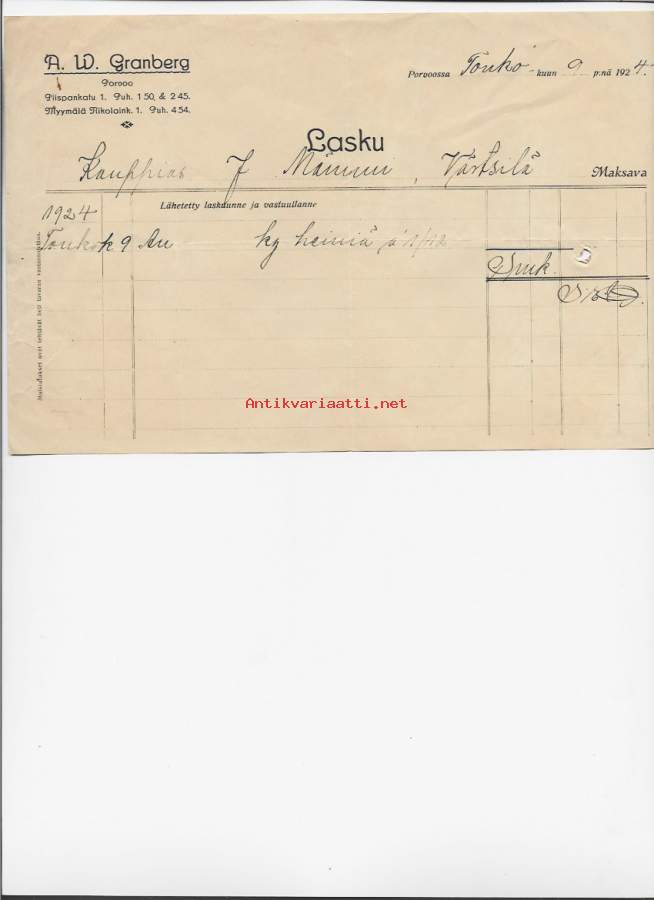 A. W. Granberg
Porvoo
Piispankatu 1. Puh. 1 50, & 2 45.
Myymälä Nikolaink. 1. Puh. 4 54.
Porvoossa Touko -kuun 9 p:nä 1924.
Lasku
Kauppias J Mämmi, Värtsilä Maksava
Lähetetty laskuunne ja vastuullanne
1924
Toukok 9 kg heiniä á 1/12
Smk.
Antikvariaatti.net